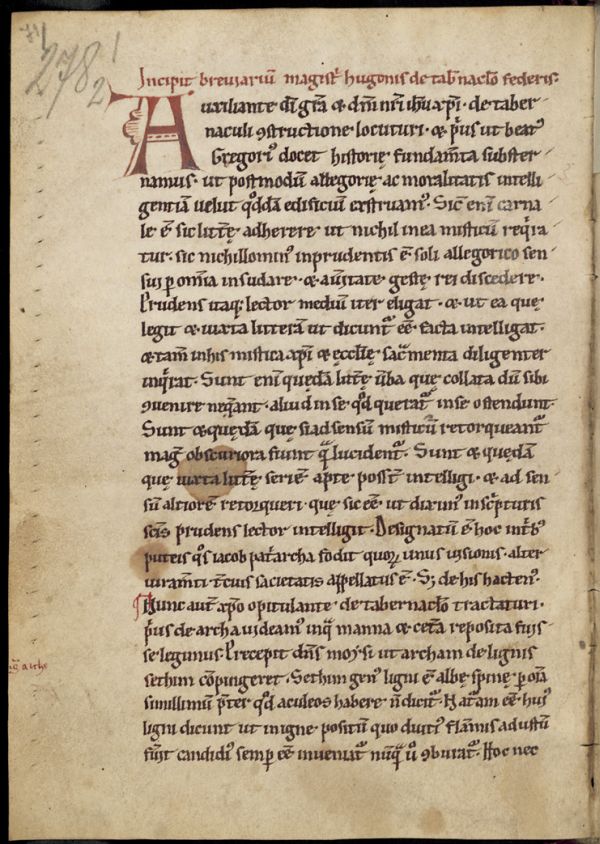 278
2
Incipit breviariũ magist̃ hugonis de tab̃nac̃lo federis·
Auxiliante dĩ gr̃a & dñi nr̃i ih̃u xp̃i · de taber-
naculi ꝯstructione locuturi · & p̃us ut beatꝰ
Gregoriꝰ docet historię fundam̃ta subster
namus · ut postmodũ allegorię ac moralitatis intelli
gentiã velut q̃ddã edificiũ exstruamꝰ · Sic̃ eni̅ carna
le ẽ sic litt̃ę adherere ut nichil in ea misticũ reqͥra
tur · sic nichillominꝰ inprudentis ẽ soli allegorico sen
sui p om̃ia insudare · & aũtate gestę rei discedere ·
Prudens itaq; lector mediũ iter eligat · & ut ea quę
legit & iuxta litterã ut dicunt̃ ẽẽ facta intelligat ·
& tam̃ in his mistica xp̃i & eccl̃ię sac̃menta diligenter
inqͥrat · Sunt eni̅ quędã litt̃ę ũba quę collata dũ sibi
ꝯvenire neq̃ant · aliud in se q̃d querat̃ in se ostendunt·
Sunt & quędã que si ad sensũ misticũ retorqueant̃
mag̃ obscuriora fiunt q̃ lucident̃ · Sunt & quędã
quę iuxta litt̃ę seriẽ ap̃te poss̃t intelligi · & ad sen
sũ altiorẽ retorqueri · quę sic ẽẽ ut diximꝰ in sc̃pturis
sc̃is prudens lector intelligit · Designatũ ẽ hoc int̃bꝰ
puteis q̃s iacob pat̃archa fodit quoꝝ unus visionis · alter
iuram̃ti t̃cius sacietatis appellatus ẽ · Sꝫ de his hactenꝰ ·
Nunc aut̃ xp̃o opitulante de tabernac̃lo tractaturi ·
p̃us de archa videamꝰ in q̃ manna & cet̃a reposita fuis-
se legimus · Precepit dñs moysi ut archam de lignis
sethim cõpingeret · Sethim genꝰ ligni ẽ albę spinę p oĩa
simillimũ p̃ter q̃d aculeos habere ñ dicit̃ · Nat̃am ẽẽ hui̅ꝰ
ligni dicunt ut in igne positũ quo diutiꝰ flam̃is adustũ
fũit candidiꝰ semp ẽẽ inveniat̃ nũq̃ ũ ꝯburat̃ · Hoc nec